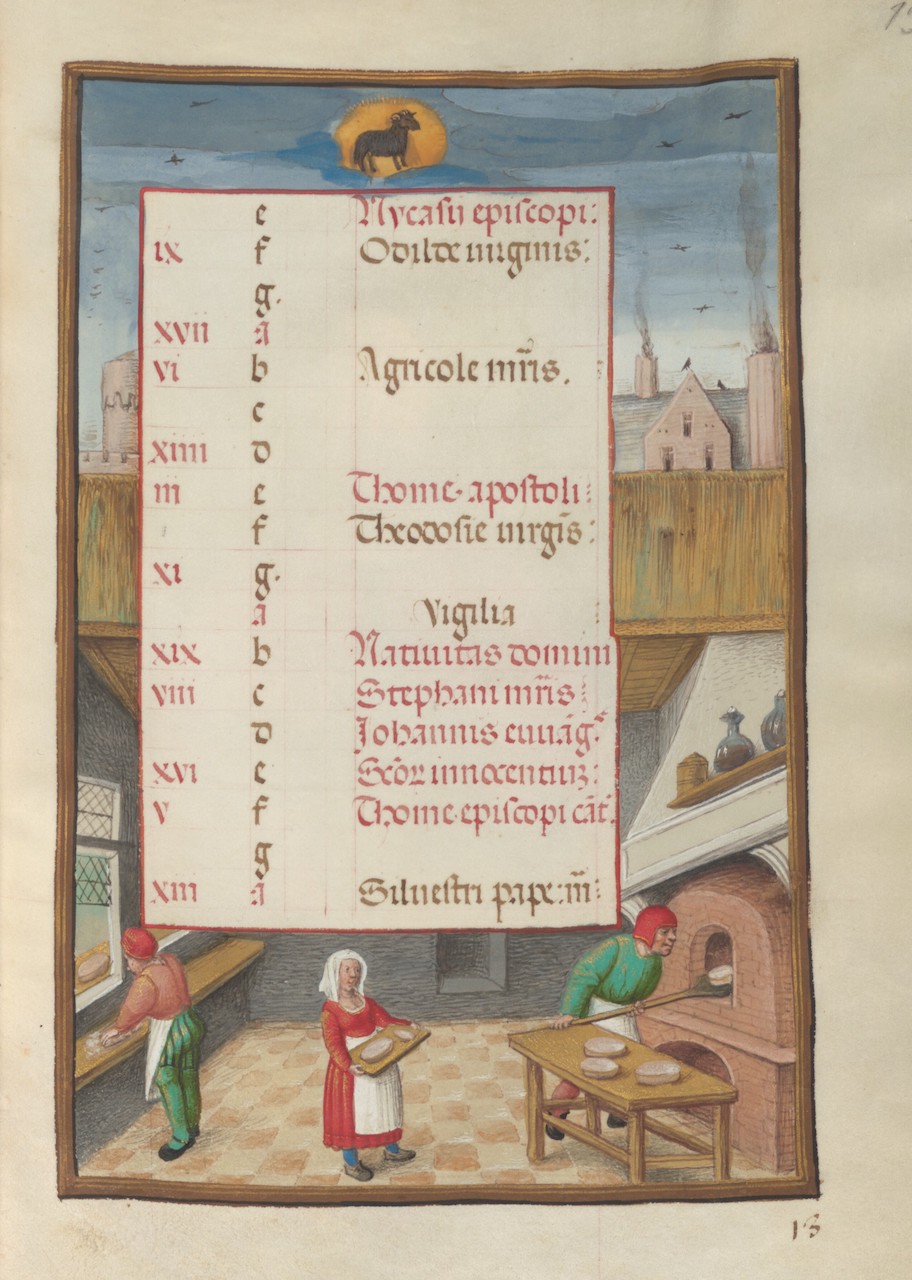 e Nycasii episcopi:
ix f Odilde virginis:
g.
xvii a
vi b Agricole mr̄is.
c
xiiii d
iii e Thome apostoli:
f Theodosie virgīs:
xi g.
a Vigilia
xix b Nativitas domini
viii c Stephani mr̄is:
d Johannis euuāg.
xvi e Sc̄oꝝ innocentiuꝫ:
v f Thome episcopi cāt.
g
xiii a Siluestri pape: m̄:
13